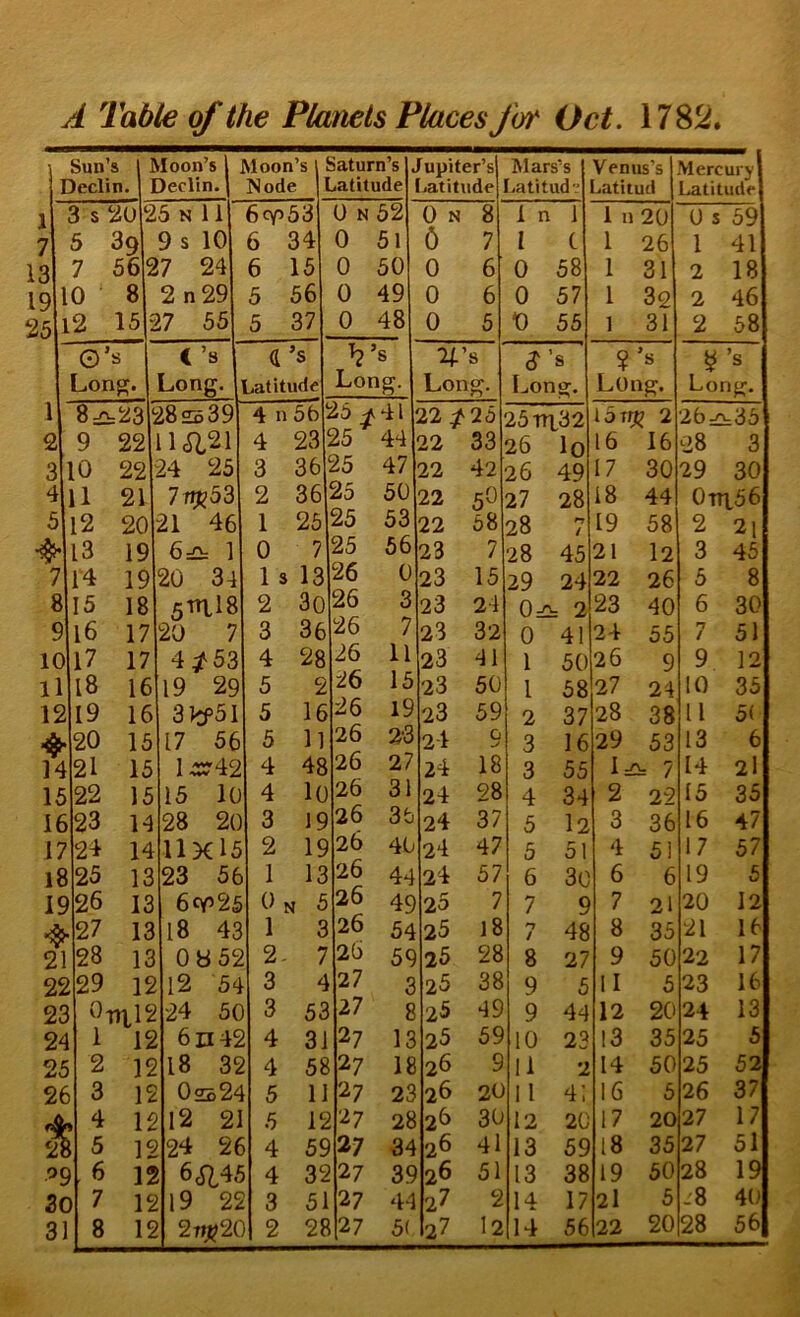 A Table of the Planets Places for Oct. 1782.
Sun's Declin. | Moon's Declin. | Moon's Node | Saturn's Latitude | Jupiter's Latitude | Mars's Latitud | Venus's Latitud | Mercury Latitude
1 | 3 s 20 | 25 N 11 | 6♈53 | 0 N 52 | 0 N 8 | 1 n 1 | 1 n 20 | 0 s 59
7 | 5 39 | 9 s 10 | 6 34 | 0 51 | 0 7 | 1 | 1 26 | 1 41
13 | 7 56 | 27 24 | 6 15 | 0 50 | 0 6 | 0 58 | 1 31 | 2 18
19 | 10 8 | 2 n 29 | 5 56 | 0 49 | 0 6 | 0 57 | 1 32 | 2 46
25 | 12 15 | 27 55 | 5 37 | 0 48 | 0 5 | 0 55 | 1 31 | 2 58
☉'s Long. | ☾'s Long. | ☾'s Latitude | ♄'s Long. | ♃'s Long. | ♂'s Long. | ♀'s Long. | ☿'s Long.
1 | 8♎23 | 28♋39 | 4 n 56 | 25♐41 | 22♐25 | 25♏32 | 15♍2 | 26♎35
2 | 9 22 | 11♌21 | 4 23 | 25 44 | 22 33 | 26 10 | 16 16 | 28 3
3 | 10 22 | 24 25 | 3 36 | 25 47 | 22 42 | 26 49 | 17 30 | 29 30
4 | 11 21 | 7♍53 | 2 36 | 25 50 | 22 50 | 27 28 | 18 44 | 0♏56
5 | 12 20 | 21 46 | 1 25 | 25 53 | 22 58 | 28 7 | 19 58 | 2 21
13 19 | 6♎1 | 0 7 | 25 56 | 23 7 | 28 45 | 21 12 | 3 45
7 | 14 19 | 20 34 | 1 s 13 | 26 0 | 23 15 | 29 24 | 22 26 | 5 8
8 | 15 18 | 5♏18 | 2 30 | 26 3 | 23 24 | 0♎2 | 23 40 | 6 30
9 | 16 17 | 20 7 | 3 36 | 26 7 | 23 32 | 0 41 | 24 55 | 7 51
10 | 17 17 | 4♐53 | 4 28 | 26 11 | 23 41 | 1 50 | 26 9 | 9 12
11 | 18 16 | 19 29 | 5 2 | 26 15 | 23 50 | 1 58 | 27 24 | 10 35
12 | 19 16 | 3♑51 | 5 16 | 26 19 | 23 59 | 2 37 | 28 38 | 11 5
20 15 | 17 56 | 5 11 | 26 23 | 24 9 | 3 16 | 29 53 | 13 6
14 | 21 15 | 1♒42 | 4 48 | 26 27 | 24 18 | 3 55 | 1♎7 | 14 21
15 | 22 15 | 15 10 | 4 10 | 26 31 | 24 28 | 4 34 | 2 22 | 15 35
16 | 23 14 | 28 20 | 3 19 | 26 35 | 24 37 | 5 12 | 3 36 | 16 47
17 | 24 14 | 11♓15 | 2 19 | 26 40 | 24 47 | 5 51 | 4 51 | 17 57
18 | 25 13 | 23 56 | 1 13 | 26 44 | 24 57 | 6 30 | 6 6 | 19 5
19 | 26 13 | 6♈25 | 0 N 5 | 26 49 | 25 7 | 7 9 | 7 21 | 20 12
27 13 | 18 43 | 1 3 | 26 54 | 25 18 | 7 48 | 8 35 | 21 16
21 | 28 13 | 0♉52 | 2 7 | 26 59 | 25 28 | 8 27 | 9 50 | 22 17
22 | 29 12 | 12 54 | 3 4 | 27 3 | 25 38 | 9 5 | 11 5 | 23 16
23 | 0♏12 | 24 50 | 3 53 | 27 8 | 25 49 | 9 44 | 12 20 | 24 13
24 | 1 12 | 6♊42 | 4 31 | 27 13 | 25 59 | 10 23 | 13 35 | 25 5
25 | 2 12 | 18 32 | 4 58 | 27 18 | 26 9 | 11 2 | 14 50 | 25 52
26 | 3 12 | 0♋24 | 5 11 | 27 23 | 26 20 | 11 41 | 16 5 | 26 37
4 12 | 12 21 | 5 12 | 27 28 | 26 30 | 12 20 | 17 20 | 27 17
28 | 5 12 | 24 26 | 4 59 | 27 34 | 26 41 | 13 59 | 18 35 | 27 51
29 | 6 12 | 6♌45 | 4 32 | 27 39 | 26 51 | 13 38 | 19 50 | 28 19
30 | 7 12 | 19 22 | 3 51 | 27 44 | 27 2 | 14 17 | 21 5 | 28 40
31 | 8 12 | 2♍20 | 2 28 | 27 5 | 27 12 | 14 56 | 22 20 | 28 56